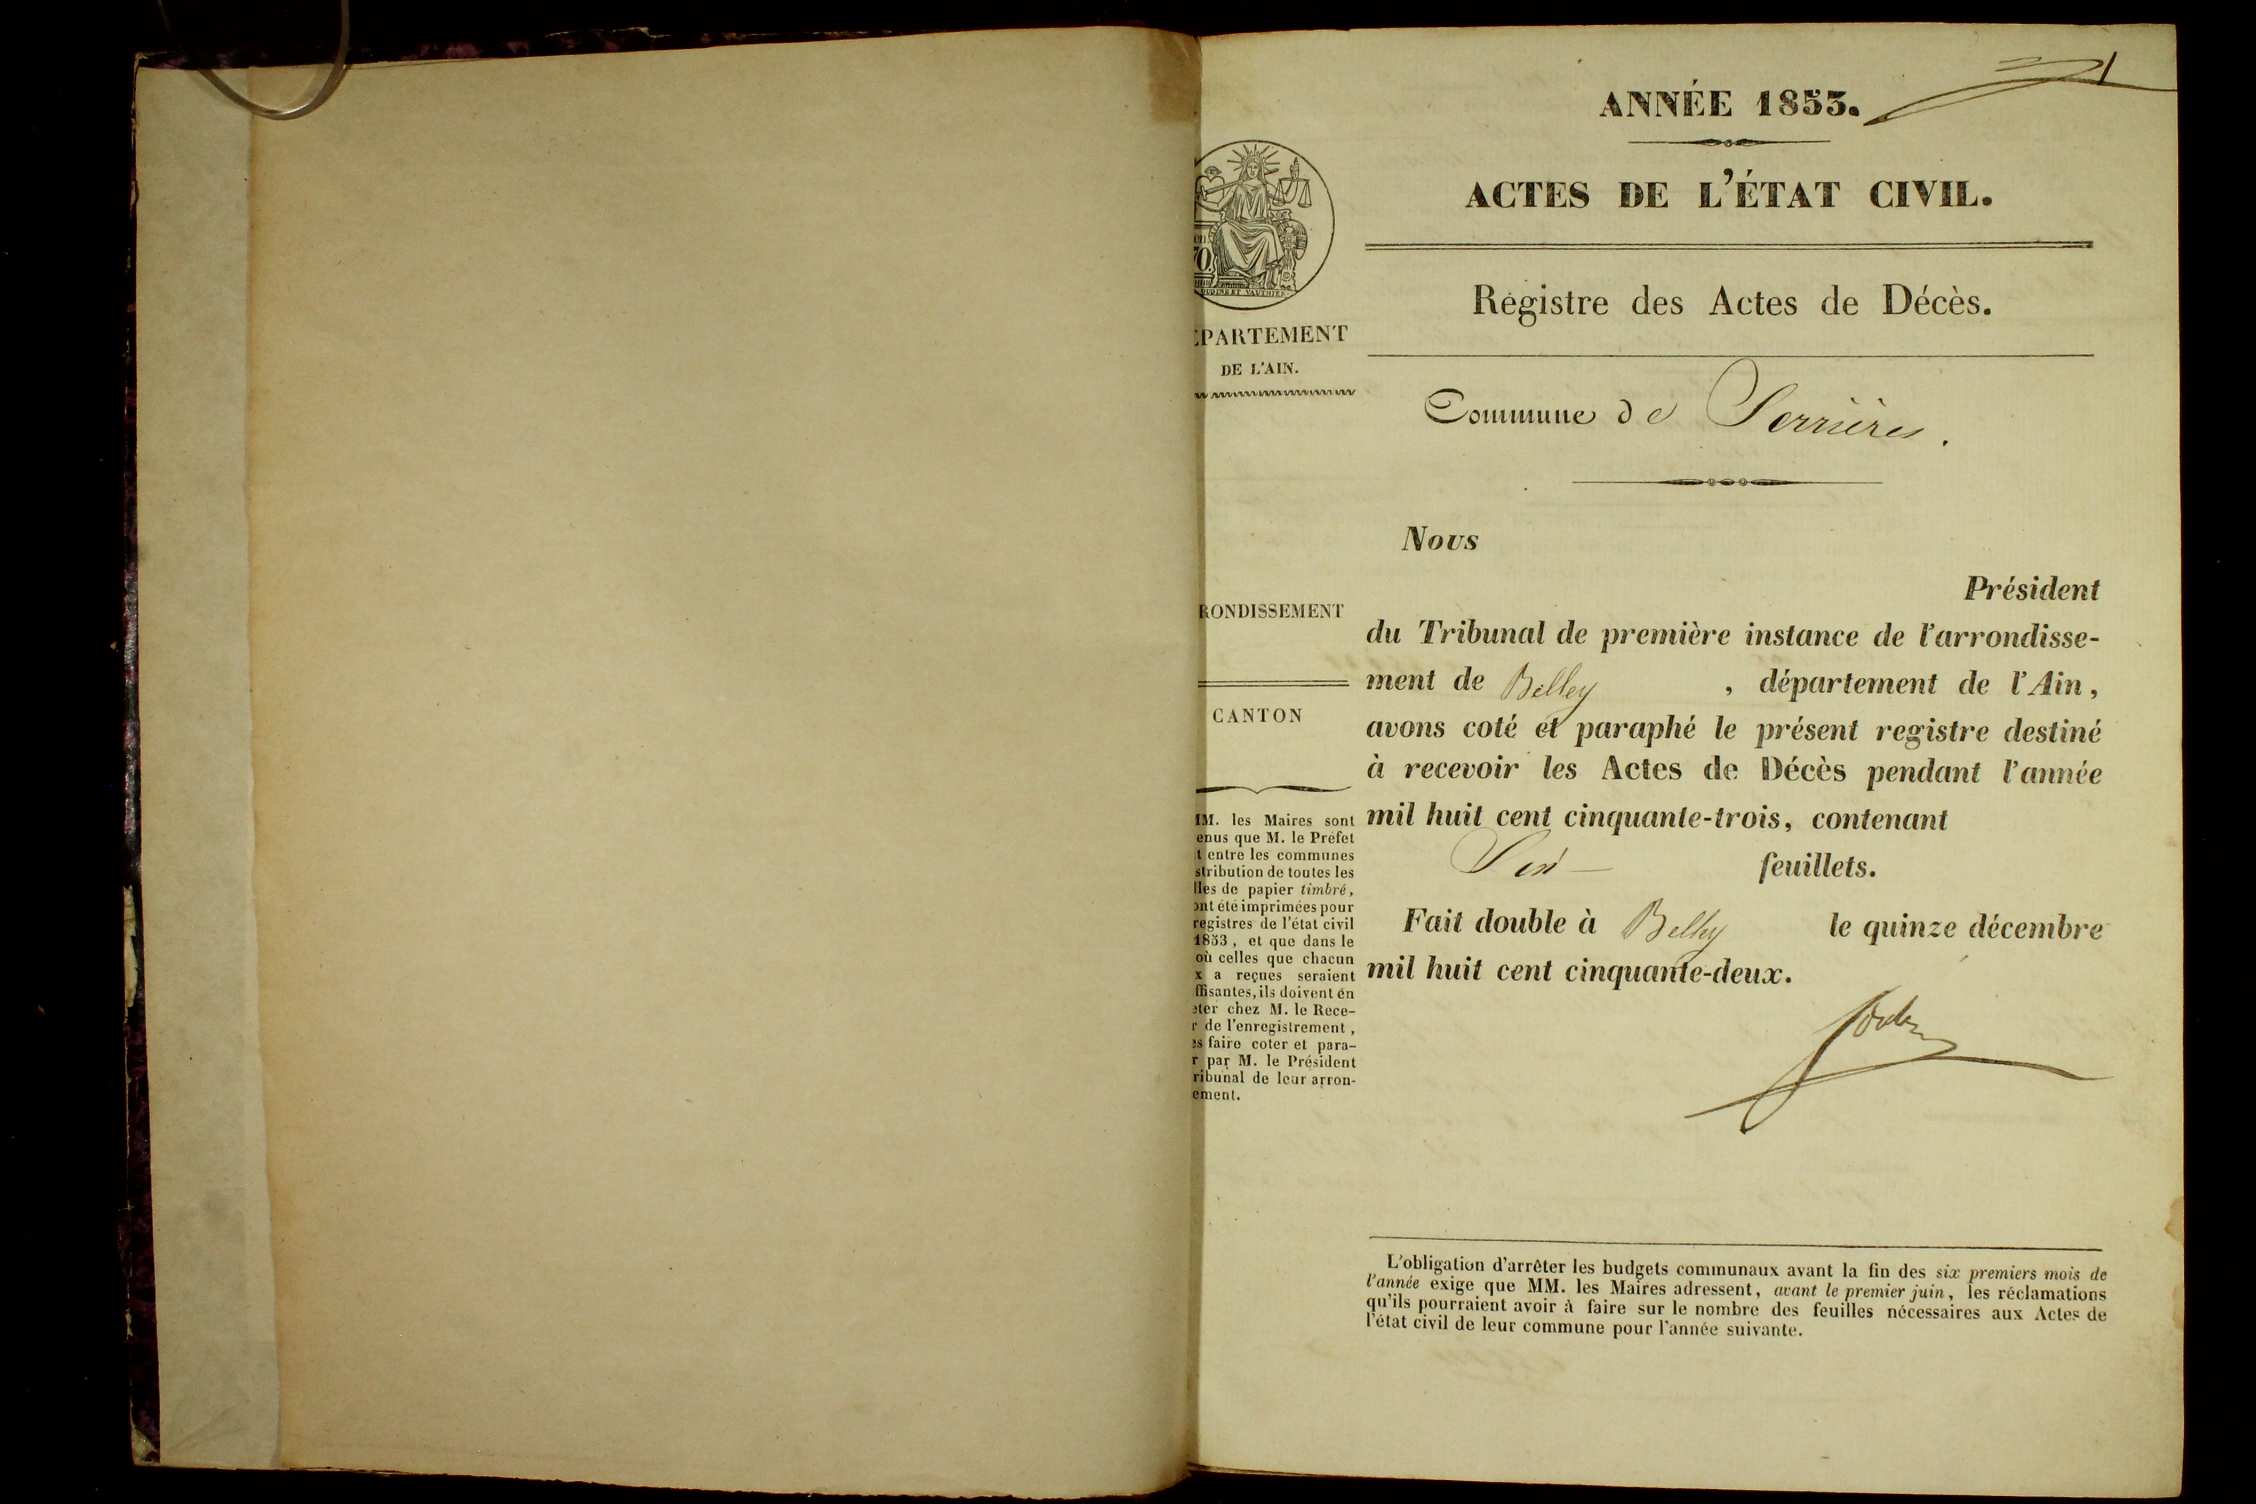 1
ANNÉE 1853.
ACTES DE L'ÉTAT CIVIL.
Régistre des Actes de Décès.
70
OUDINE ET VAUTHIER
EPARTEMENT
DE L'AIN.
Commune de Serrières.
Nous
Président
du Tribunal de première instance de l'arrondisse-
ment de Belley , département de l'Ain,
avons coté et paraphé le présent registre destiné
à recevoir les Actes de Décès pendant l'année
mil huit cent cinquante-trois, contenant
Six feuillets.
Fait double à Belley le quinze décembre
mil huit cent cinquante-deux.
RONDISSEMENT
CANTON
MM. les Maires sont
enus que M. le Préfet
t entre les communes
stribution de toutes les
lles de papier timbré,
ont été imprimées pour
registres de l'état civil
1853, et que dans le
où celles que chacun
x a reçues seraient
ffisantes, ils doivent en
eter chez M. le Rece-
r de l'enregistrement,
es faire coter et para-
r par M. le Président
ribunal de leur arron-
ement.
L'obligation d'arrêter les budgets communaux avant la fin des six premiers mois de
l'année exige que MM. les Maires adressent, avant le premier juin, les réclamations
qu'ils pourraient avoir à faire sur le nombre des feuilles nécessaires aux Actes de
l'état civil de leur commune pour l'année suivante.